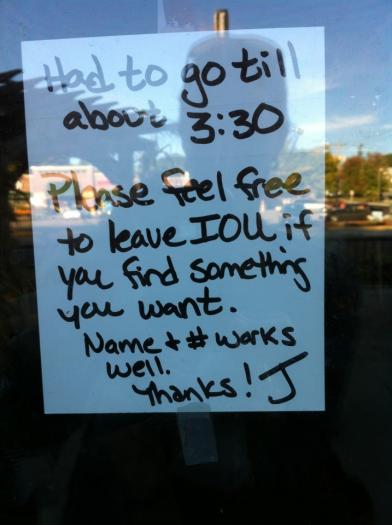 Had to go till
about 3:30
Please feel free
to leave IOU if
you find something
you want.
Name + # works
well.
Thanks! J